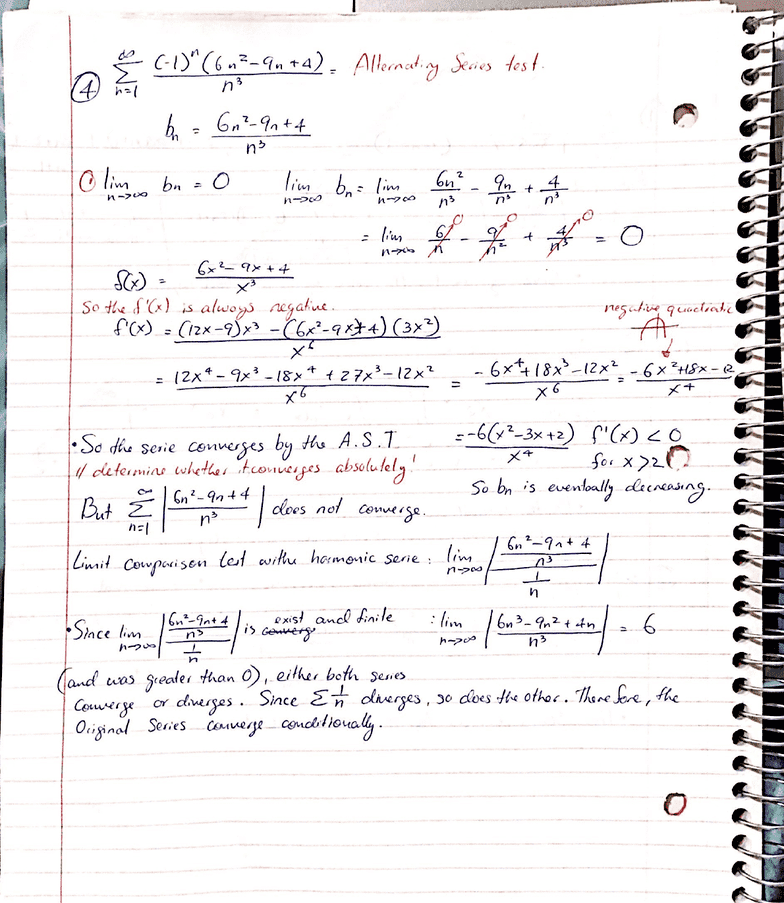 ④ ∞ Σ n=1 (-1)ⁿ(6n²-9n+4) / n³ = Alternating Series test.
bₙ = (6n²-9n+4) / n³
① lim n→∞ bₙ = 0 lim n→∞ bₙ = lim n→∞ 6n²/n³ - 9n/n³ + 4/n³
= lim n→∞ 6/n - 9/n² + 4/n³ = 0
0 0 0
f(x) = (6x²-9x+4) / x³
So the f'(x) is always negative. negative quadratic
f'(x) = ((12x-9)x³ - (6x²-9x+4)(3x²)) / x⁶
= (12x⁴-9x³-18x⁴+27x³-12x²) / x⁶ = (-6x⁴+18x³-12x²) / x⁶ = (-6x²+18x-12) / x⁴
• So the serie converges by the A.S.T = -6(x²-3x+2) / x⁴ f'(x) < 0
// determine whether it converges absolutely! for x>2
So bn is eventually decreasing.
But ∞ Σ n=1 |(6n²-9n+4) / n³| does not converge.
Limit comparison test withe harmonic serie : lim n→∞ |((6n²-9n+4)/n³) / (1/n)|
• Since lim n→∞ |((6n²-9n+4)/n³) / (1/n)| is converge exist and finite : lim n→∞ |(6n³-9n²+4n) / n³| = 6
(and was greater than 0), either both series
converge or diverges. Since Σ 1/n diverges, so does the other. Therefore, the
Original Series converge conditionally.